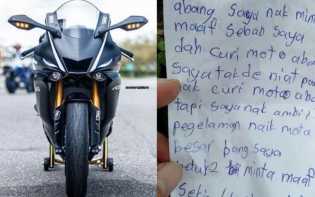 abang saya nak min
maaf sebab saya
dah curi moto aba
saya tak de niat pon
nak curi moto aba
tapi saya nak ambil
pegelaman naik moto
besar bang saya
minta maaf